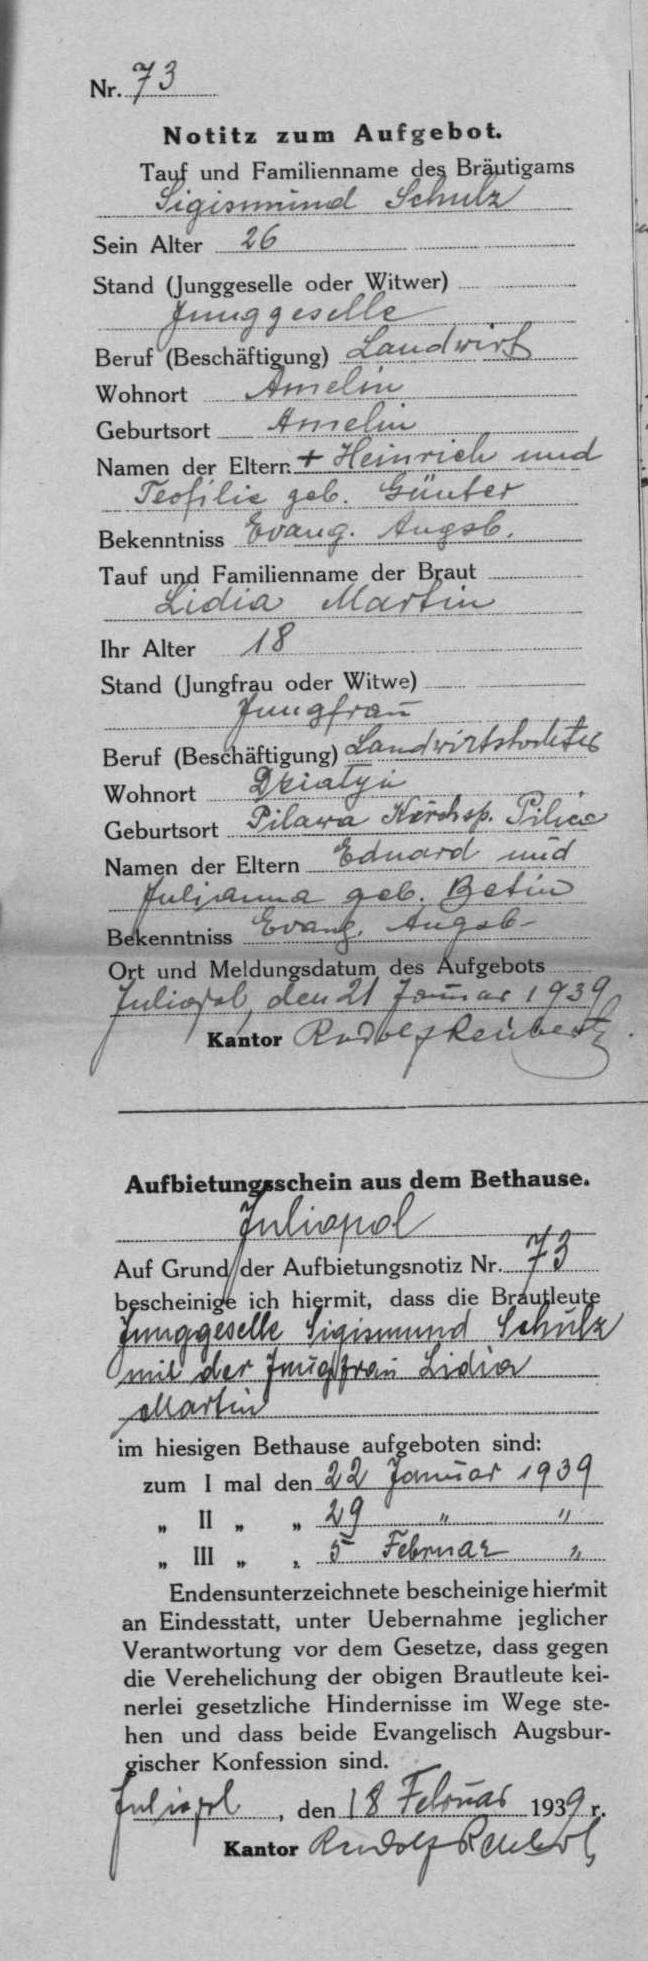 Nr. 73
Notitz zum Aufgebot.
Tauf und Familienname des Bräutigams
Sigismund Schulz
Sein Alter 26
Stand (Junggeselle oder Witwer)
Junggeselle
Beruf (Beschäftigung) Landwirt
Wohnort Amelin
Geburtsort Amelin
Namen der Eltern + Heinrich und
Teofilie geb. Günter
Bekenntniss Evang. Augsb.
Tauf und Familienname der Braut
Lidia Martin
Ihr Alter 18
Stand (Jungfrau oder Witwe)
Jungfrau
Beruf (Beschäftigung) Landwirtstochter
Wohnort
Geburtsort Pilawa Kirchsp. Pilica
Namen der Eltern Eduard und
Julianna geb. Betin
Bekenntniss Evang. Augsb-
Ort und Meldungsdatum des Aufgebots
Juliopol, den 21 Januar 1939
Kantor Rudolf
Aufbietungsschein aus dem Bethause.
Juliopol
Auf Grund der Aufbietungsnotiz Nr. 73
bescheinige ich hiermit, dass die Brautleute
Junggeselle Sigismund Schulz
mit der Jungfrau Lidia
Martin
im hiesigen Bethause aufgeboten sind:
zum I mal den 22 Januar 1939
„ II „ „ 29 " "
„ III „ „ 5 Februar "
Endensunterzeichnete bescheinige hiermit
an Eindesstatt, unter Uebernahme jeglicher
Verantwortung vor dem Gesetze, dass gegen
die Verehelichung der obigen Brautleute kei-
nerlei gesetzliche Hindernisse im Wege ste-
hen und dass beide Evangelisch Augsbur-
gischer Konfession sind.
Juliopol, den 18 Februar 1939 r.
Kantor Rudolf